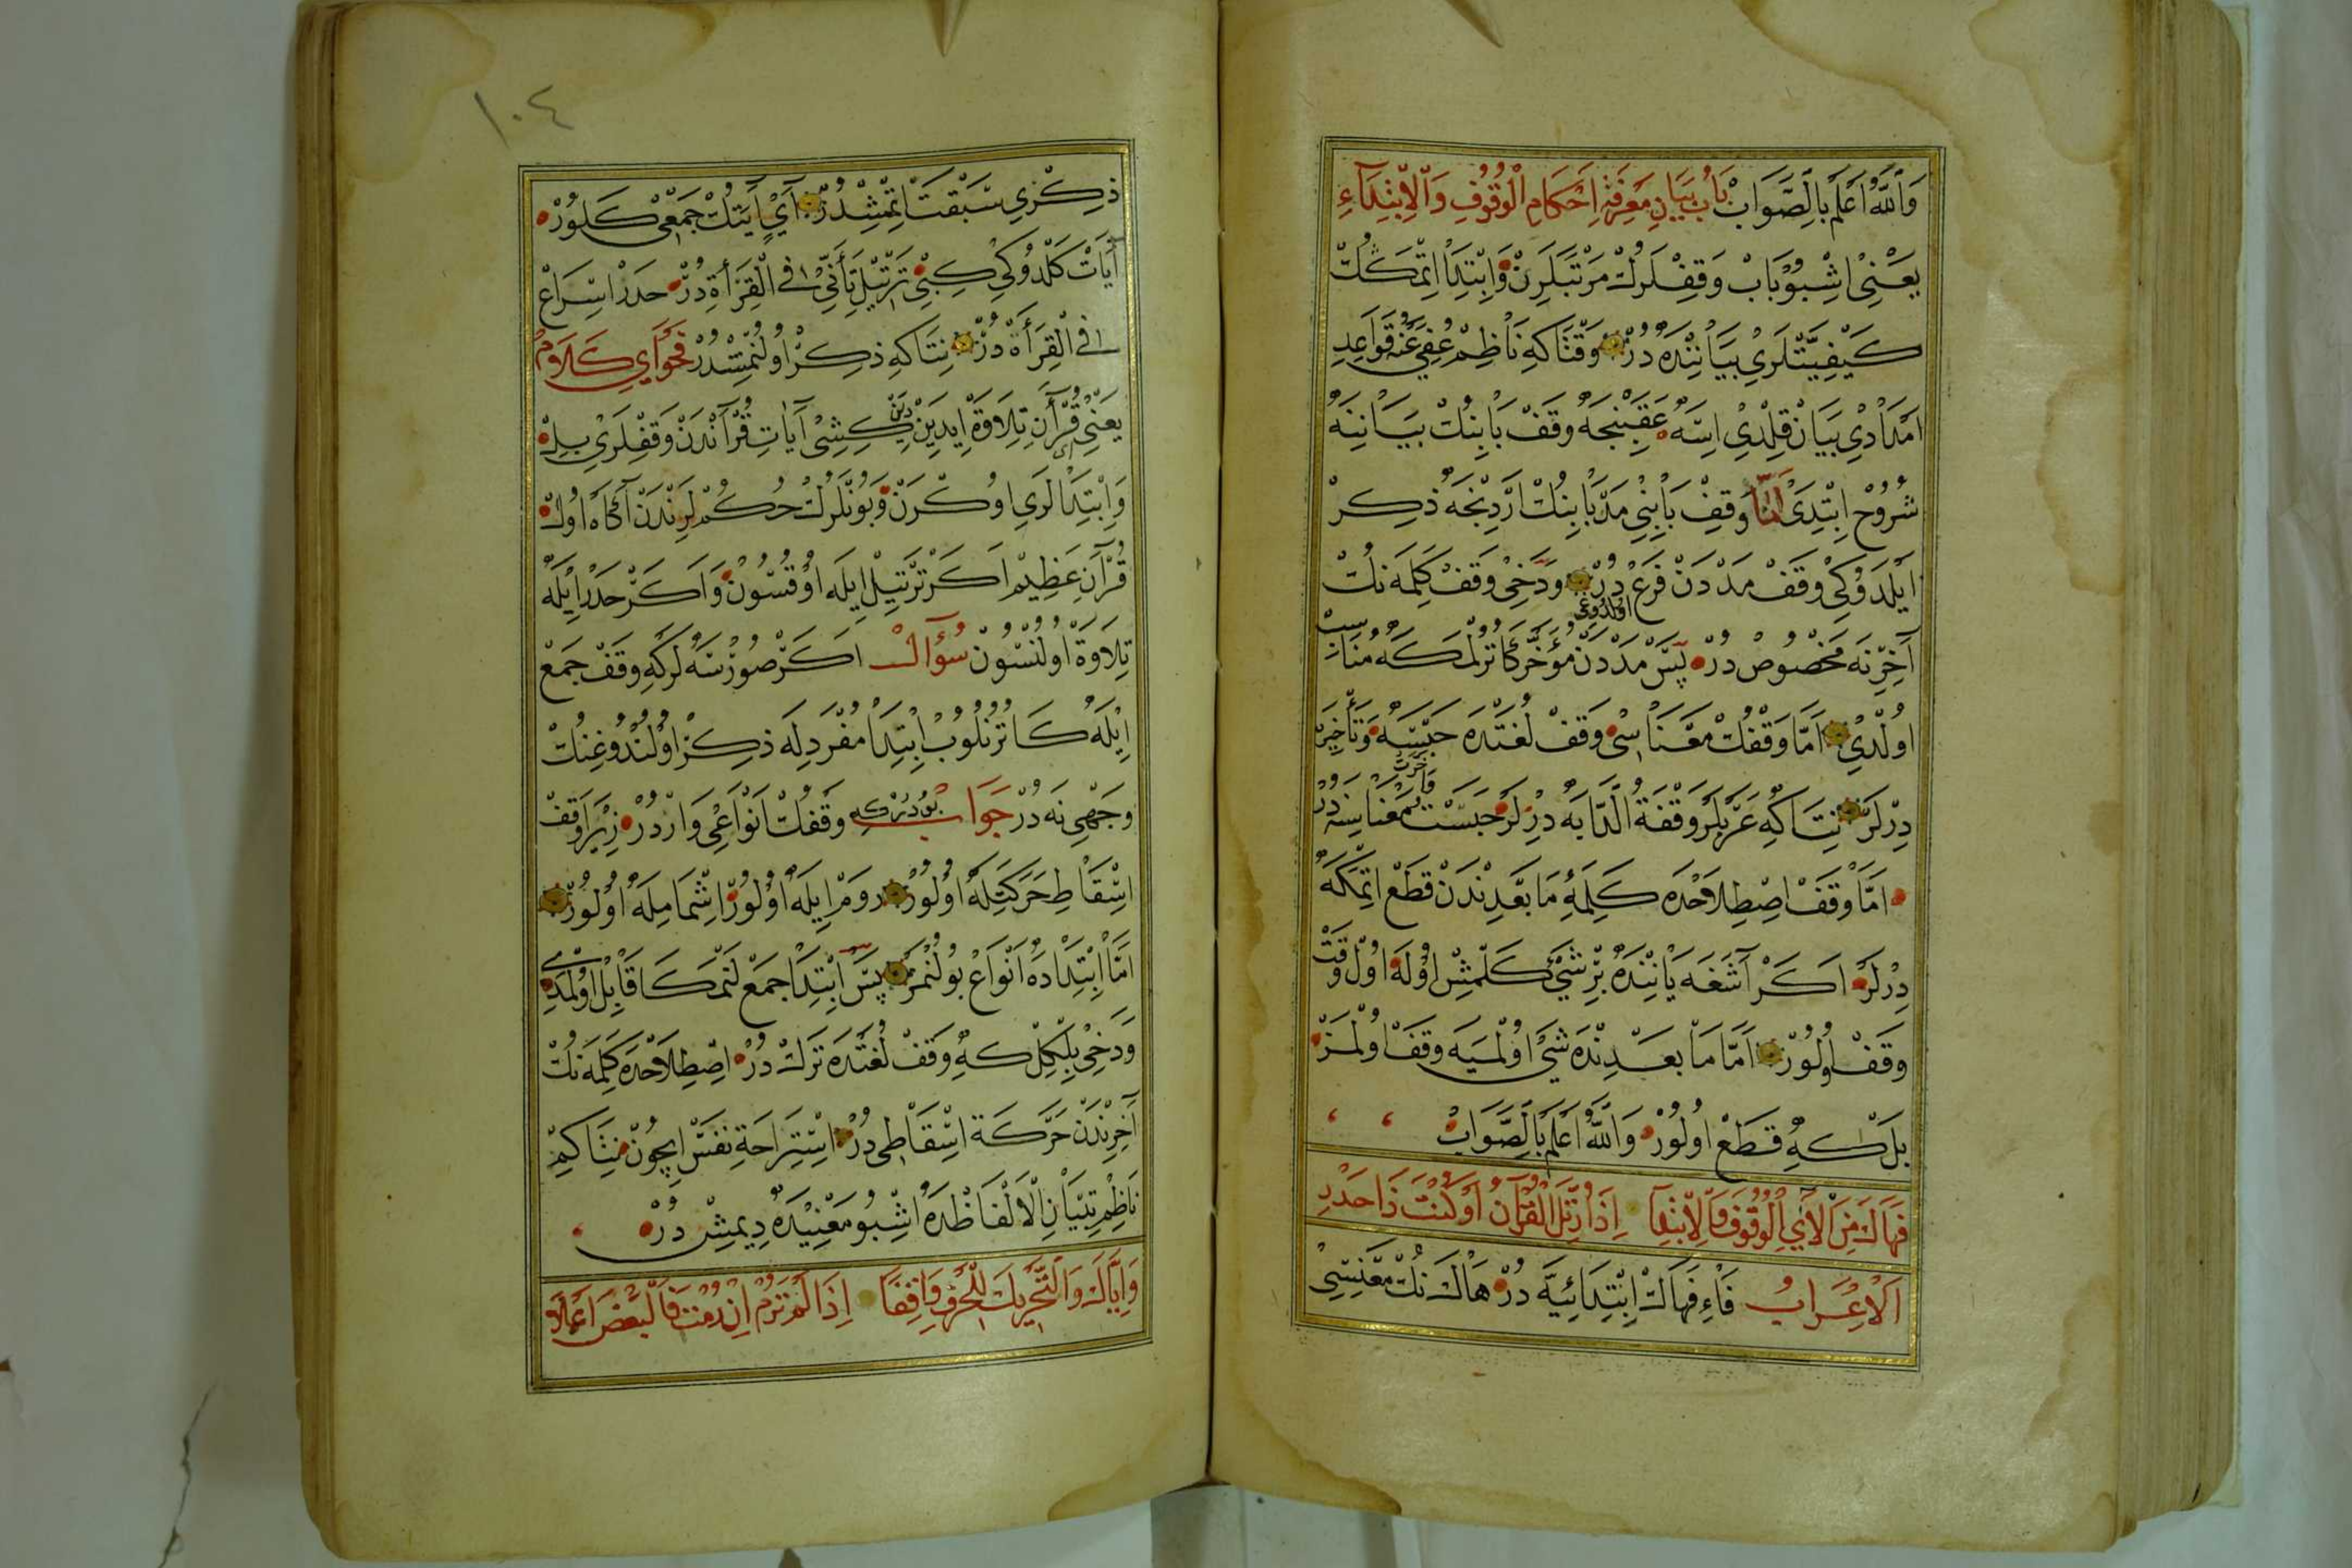 وَاللّٰهُ اَعْلَمُ بِالصَّوَابْ بَابُ بَيَانِ مَعْرِفَةِ اَحْكَامِ الْوُقُوفِ وَالْاِبْتِدَاءِ
يَعْنِي اِشْبُو بَابْ وَقْفْلَرُكْ مَرْتَبَلَرِنْ وَاِبْتِدَا اِتْمَكْلُكْ
كَيْفِيَّتْلَرِي بَيَانِنْدَهْ دُرْ وَقْتَاكِهِ نَاظِمْ عُفِيَ عَنْهُ قَوَاعِدِ
اِمْدَادِي بَيَانْ قِلْدِي اِسَهْ عَقِبِنْجَهْ وَقْفْ بَابِنُكْ بَيَانِنَهْ
شُرُوحْ اِبْتِدِي اَمَّا وَقْفِ بَابِنِي مَدّ بَابِنُكْ اَرْدِنْجَهْ ذِكِرْ
اَيْلَدُوكِي وَقْفْ مَدْدَنْ فَرْعْ دُرْ وَدَخِي وَقْفْ كَلِمَه نُكْ
آخِرِنَه مَخْصُوصْ دُرْ پَسْ مَدْدَنْ مُؤَخَّرْ كَاتُرْلْمَكَهْ مُنَاسِبْ
اولدوغى
اُولْدِي اَمَّا وَقْفُكْ مَعْنَاسِي وَقْفْ لُغَتْدَه حَبْسَهْ وَتَأْخِيرَهْ
دِرْلَرْ نِتَاكِهِ عَرَبْلَرْ وَقْفَةُ الدَّابَه دِرْلَرْ حَبَسْتُ مَعْنَاسِنَه دُرْ
اَمَّا وَقْفْ اِصْطِلَاحْدَه كَلِمَهِ مَا بَعْدِنْدَنْ قَطْعْ اِتْمَكَهْ
دِرْلَرْ اَكَرْ آشَغَه يَانِنْدَه بِرْ شَيْ كَلْمِشْ اُولَهْ اُولْ وَقْتْ
وَقْفْ اُولُورْ اَمَّا مَا بَعْدِنْدَه شَيْ اُولْمَيَه وَقْفْ اُولْمَزْ
بَلْكِهِ قَطْعْ اُولُورْ وَاللّٰهُ اَعْلَمُ بِالصَّوَابْ
فَهَاكَ مِنَ الْآيِ الْوُقُوفَ وَالْاِبْتِدَا اِذَا رُتِّلَ الْقُرْآنُ اَوْ كُنْتَ ذَا حَدْرِ
اَلْاِعْرَابُ فَاءِ فَهَاكَ اِبْتِدَائِيَّه دُرْ هَاكَ نُكْ مَعْنِسِي
١٠٤
ذِكْرِي سَبْقَتْ اِتْمِشْدُرْ آيْ اٰيَتُكْ جَمْعِي كَلُورْ
آيَاتْ كَلْدُوكِي كِبِي تَرْتِيلْ تَأَنِّي فِي الْقِرَاءَةِ دُرْ حَدَرْ اِسْرَاعْ
فِي الْقِرَأَةْ دُرْ نِتَاكِهِ ذِكِرْ اُولُنْمِشْدُرْ فَحْوَاي كَلَامْ
يَعْنِي قُرْآنِ تِلَاوَةْ اِيدَيِنْ دِيَنْ كِشِي آيَاتِ قُرْآنْدَنْ وَقْفْلَرِي بِلْ
وَاِبْتِدَالَرِي اُوكْرَنْ وَبُونْلَرُكْ حُكْمْلَرِنْدَنْ آكَاهْ اُولْ
قُرْآنِ عَظِيمْ اَكَرْ تَرْتِيلْ اِيلَه اُوقُنْسُونْ وَاَكَرْ حَدَرْ اِيْلَهْ
تِلَاوَةْ اُولُنْسُونْ سُؤَالْ اَكَرْ صُورْسَهْ لَرْكِهِ وَقْفْ جَمْعْ
اِيْلَهْ كَاتُرْلُوبْ اِبْتِدَا مُفْرَدِلَه ذِكِرْ اُولُنْدُوغِنُكْ
وَجْهِي نَه دُرْ جَوَابْ بُودُرْكِه وَقْفُكْ اَنْوَاعِي وَارْدُرْ زِيرَا وَقْفْ
اِسْقَاطِ حَرَكَتِلَهْ اُولُورْ رَومْ اِيلَهْ اُولُورْ اِشْمَامِلَهْ اُولُورْ
اَمَّا اِبْتِدَادَهْ اَنْوَاعْ بُولُنْمَزْ پَسْ اِبْتِدَا جَمْعْ لَنْمَكَا قَابِلْ اُولْمَدِي
وَدَخِي بِلْكِلْ كِهِ وَقْفْ لُغَتْدَه تَرْكْ دُرْ اِصْطِلَاحْدَه كَلِمَه نُكْ
آخِرِنْدَنْ حَرَكَة اِسْقَاطِي دُرْ اِسْتِرَاحَةِ نَفَسْ اِيچُونْ نِتَاكِمْ
نَاظِمْ تِبْيَانِ الْاَلْفَاظْدَهْ اِشْبُو مَعْنِيْدَهْ دِيمِشْ دُرْ
وَاِيَّاكَ وَالتَّحْرِيكَ لِلْحَرْفِ وَاقِفًا اِذَا لَمْ تَرُمْ اِنْ رُمْتَ فَالْبَعْضَ